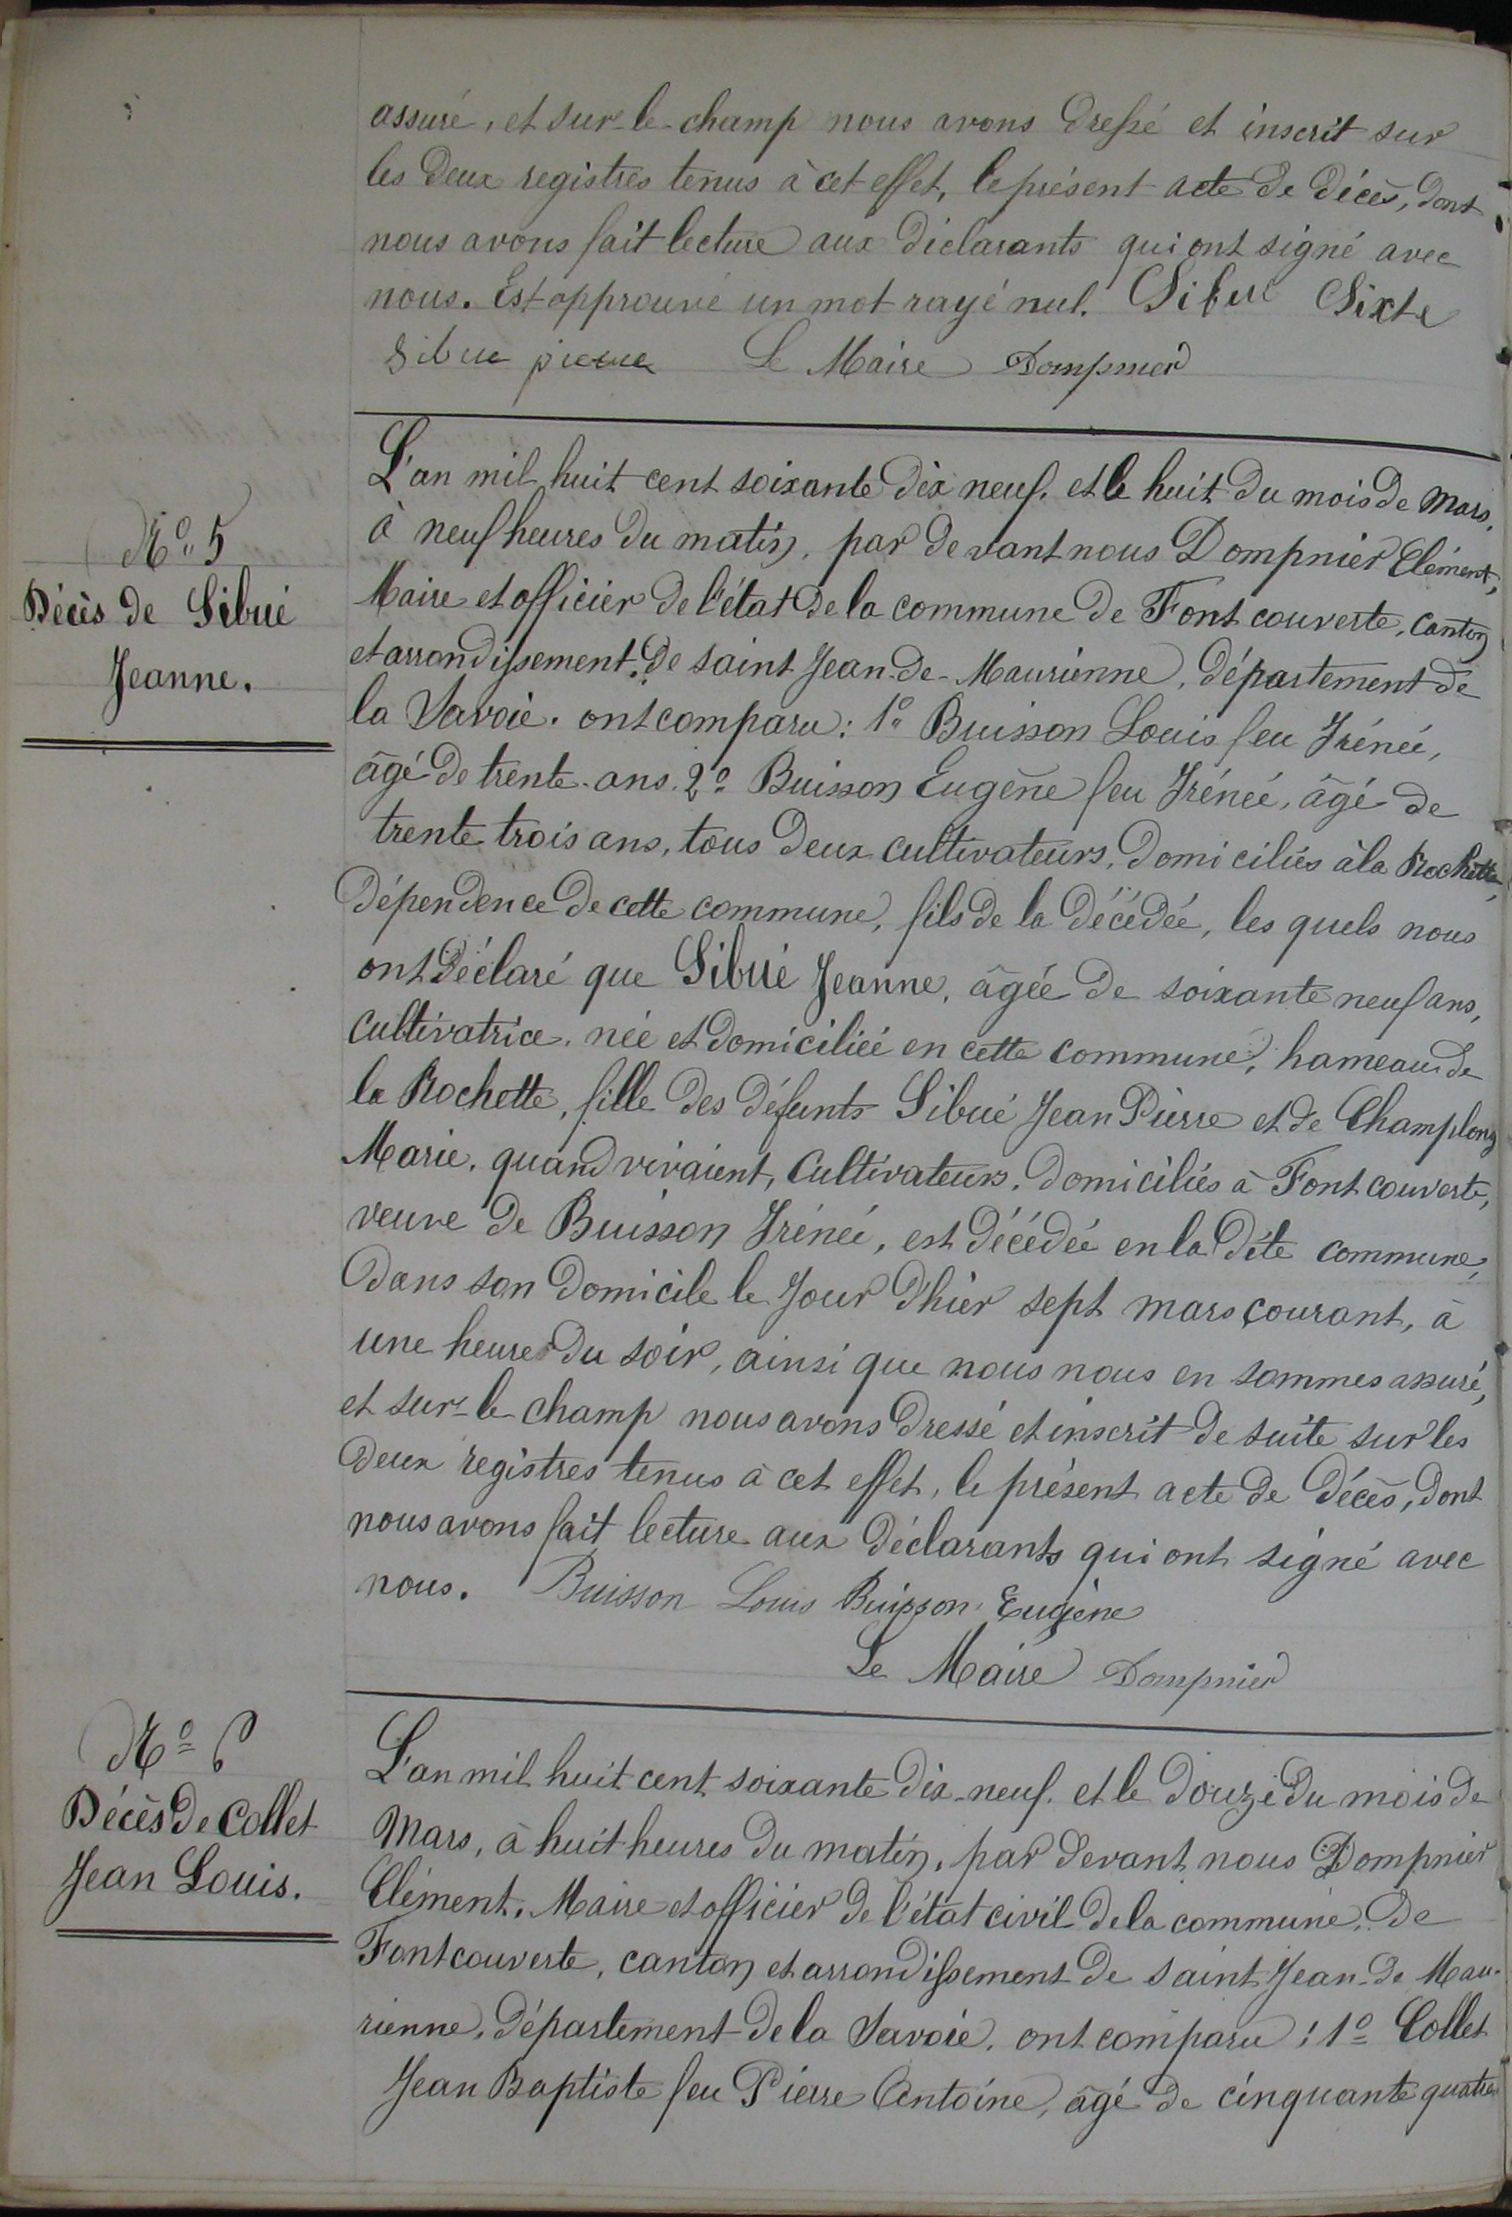 assuré, et sur-le-champ nous avons dressé et inscrit sur
les deux registres tenus à cet effet, le présent acte de décès, dont
nous avons fait lecture aux déclarants qui ont signé avec
nous. Est approuvé un mot rayé nul. Sibué Sixte
Sibue pierre Le Maire Dompnier
N° 5
Décès de Sibué
Jeanne.
L'an mil huit cent soixante dix neuf, et le huit du mois de Mars,
à neuf heures du matin, par devant nous Dompnier Clément,
Maire et officier de l'état de la commune de Fontcouverte, canton
et arrondissement de saint Jean-de-Maurienne, département de
la Savoie, ont comparu: 1° Buisson Louis feu Irénée,
âgé de trente-ans, 2° Buisson Eugène feu Irénée, âgé de
trente trois ans, tous deux cultivateurs, domiciliés à la Rochette,
dépendence de cette commune, fils de la décédée, les quels nous
ont déclaré que Sibué Jeanne, âgée de soixante neuf ans,
cultivatrice, née et domiciliée en cette commune, hameau de
la Rochette, fille des défunts Sibué Jean Pierre et de Champlong
Marie, quand vivaient, Cultivateurs, domiciliés à Fontcouverte,
veuve de Buisson Irénée, est décédée en la dite commune,
dans son domicile le jour d'hier sept mars courant, à
une heure du soir, ainsi que nous nous en sommes assuré,
et sur-le champ nous avons dressé et inscrit de suite sur les
deux registres tenus à cet effet, le présent acte de décès, dont
nous avons fait lecture aux déclarants qui ont signé avec
nous. Buisson Louis Buisson Eugène
Le Maire Dompnier
N° 6
Décès de Collet
Jean Louis.
L'an mil huit cent soixante dix-neuf, et le douze du mois de
Mars, à huit heures du matin, par devant nous Dompnier
Clément, Maire et officier de l'état civil de la commune, de
Fontcouverte, canton et arrondissement de saint Jean-de Mau-
rienne, département de la Savoie, ont comparu: 1° Collet
Jean Baptiste feu Pierre Antoine, âgé de cinquante quatre